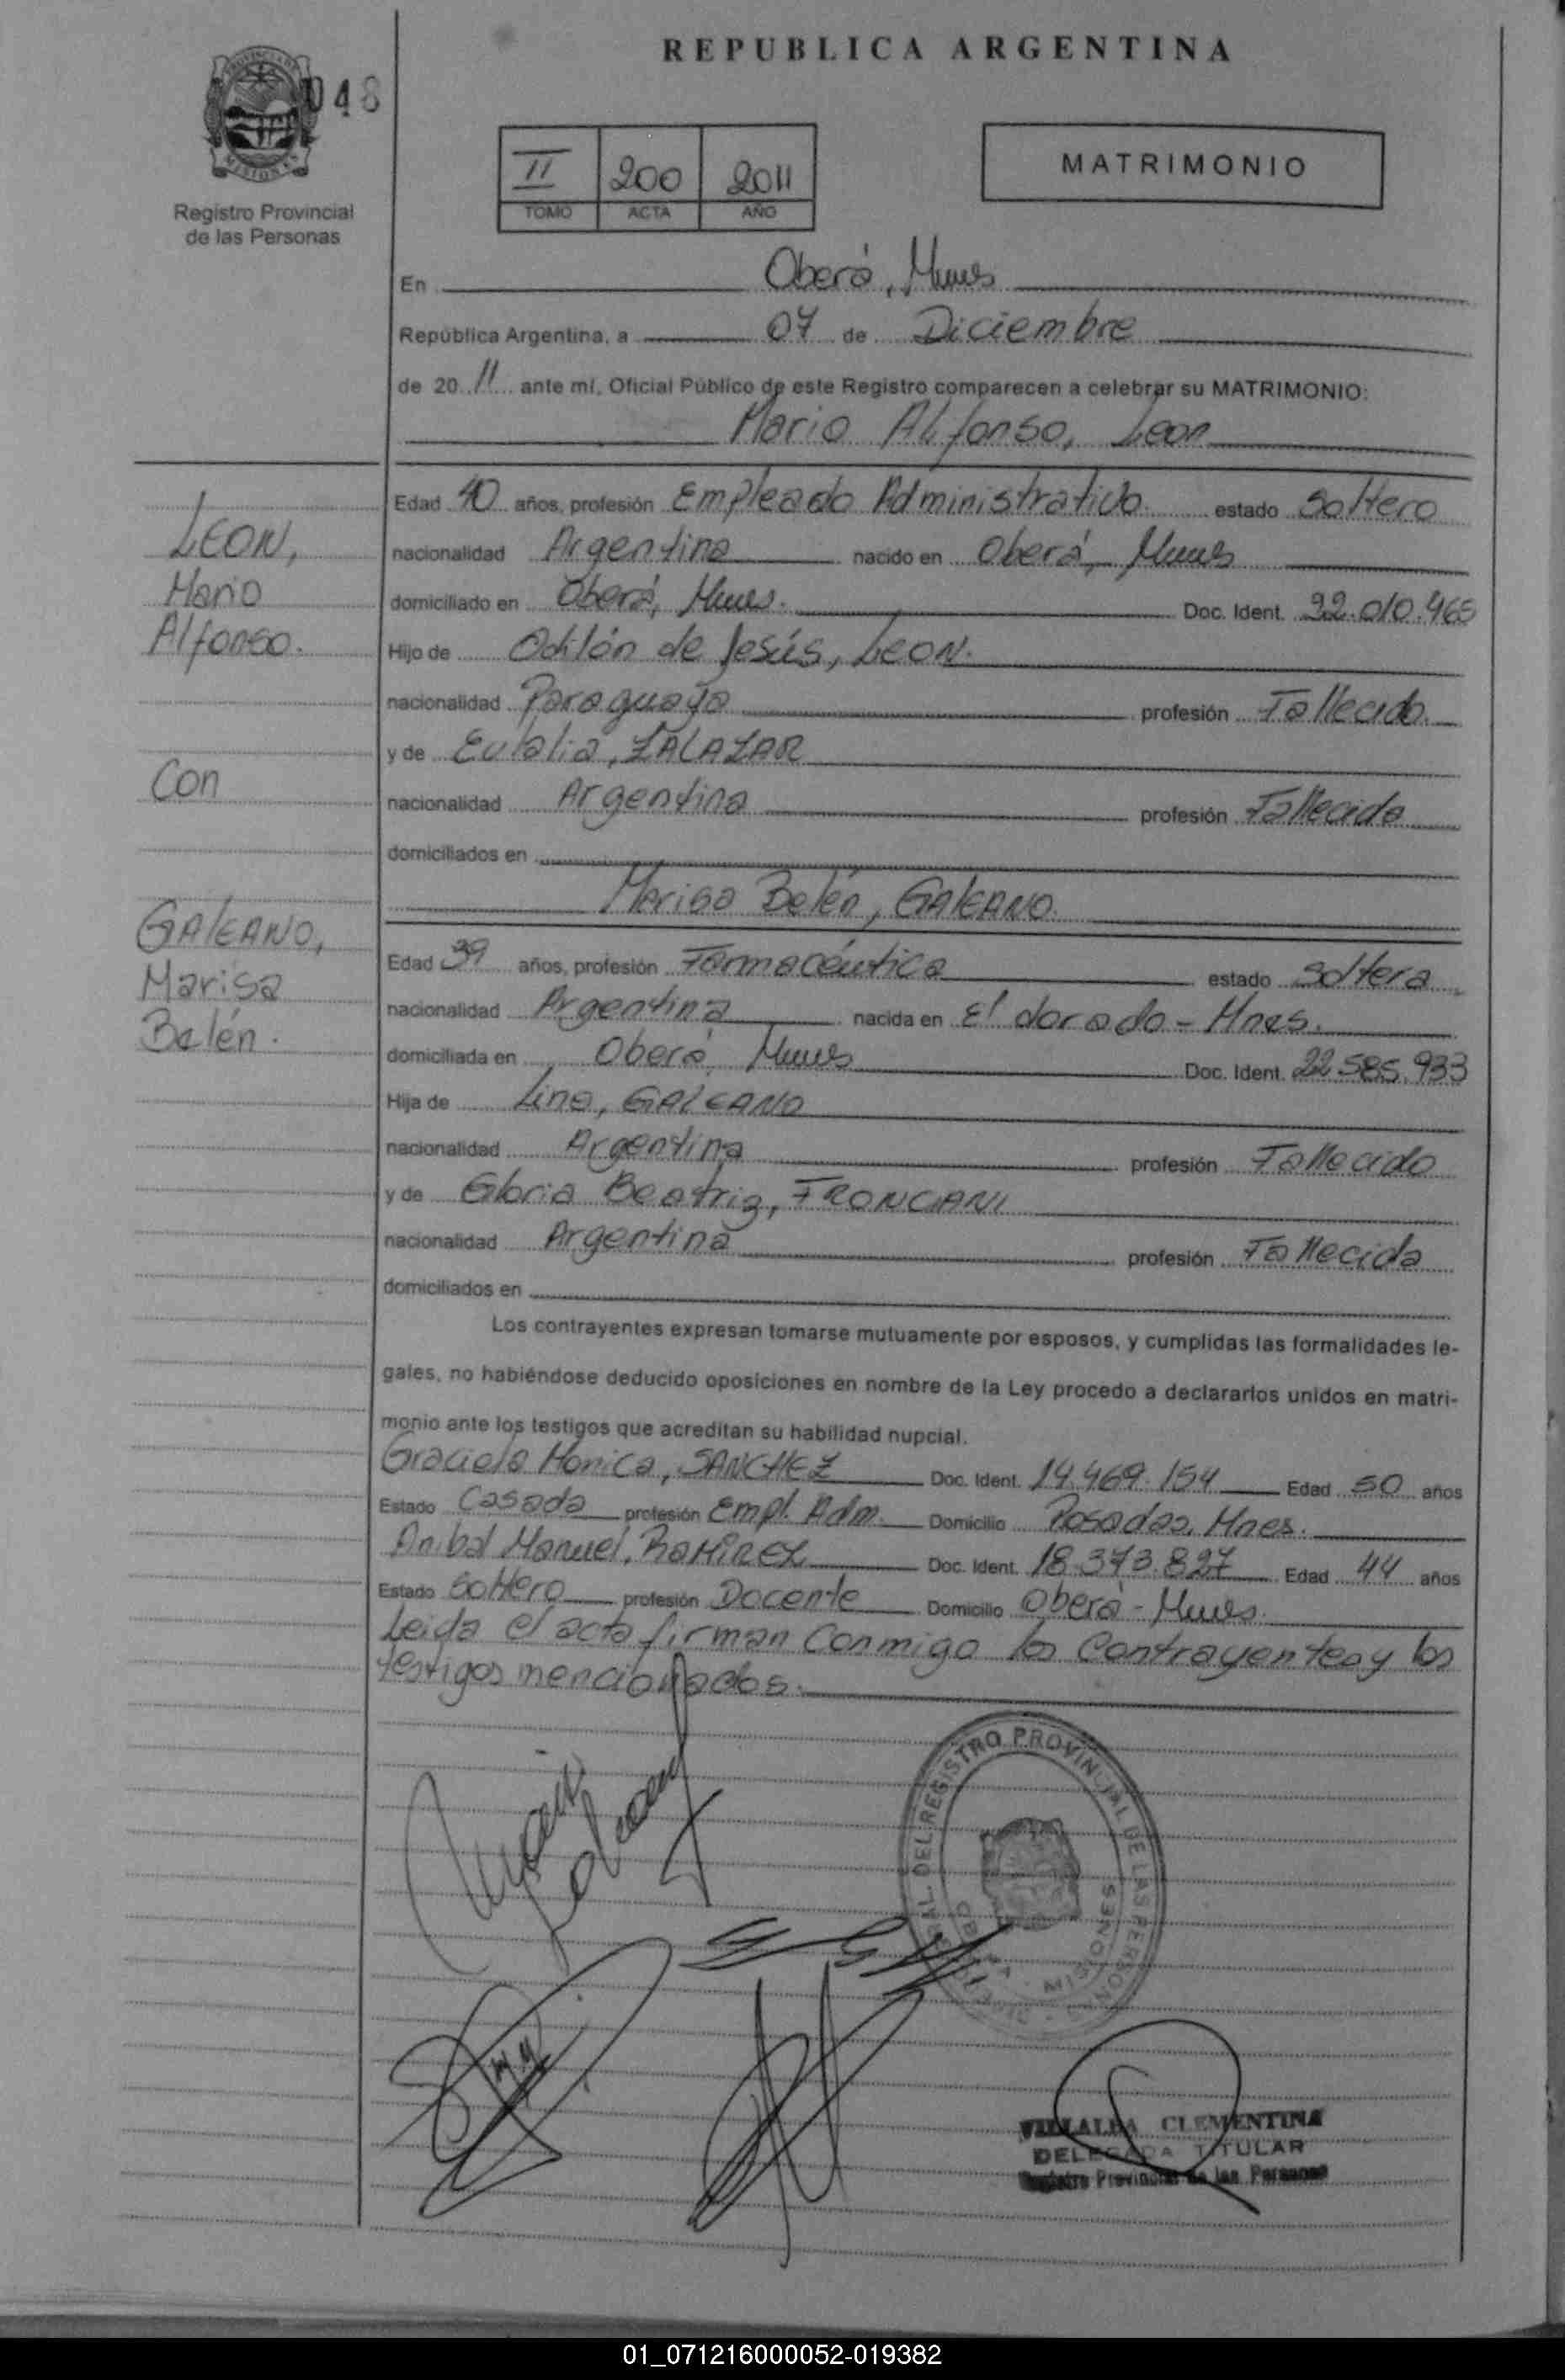 REPUBLICA ARGENTINA
048
MISIONES
Registro Provincial
de las Personas
II 200 2011
TOMO ACTA AÑO
MATRIMONIO
En Oberá, Mnes
República Argentina, a 07 de Diciembre
de 2011 ante mí, Oficial Público de este Registro comparecen a celebrar su MATRIMONIO:
Mario Alfonso, Leon
LEON,
Mario
Alfonso.
Con
GALEANO,
Marisa
Belén.
Edad 40 años, profesión Empleado Administrativo estado Soltero
nacionalidad Argentina nacido en Oberá, Mnes
domiciliado en Oberá, Mnes. Doc. Ident. 92.010.465
Hijo de Odilón de Jesús, LEON.
nacionalidad Paraguaya profesión Fallecido.
y de Eulalia, ZALAZAR
nacionalidad Argentina profesión Fallecida
domiciliados en
Marisa Belén, GALEANO.
Edad 39 años, profesión Farmacéutica estado Soltera
nacionalidad Argentina nacida en El dorado - Mnes.
domiciliada en Oberá, Mnes Doc. Ident. 22.585.933
Hija de Lino, GALEANO
nacionalidad Argentina profesión Fallecido
y de Gloria Beatriz, FRONCIANI
nacionalidad Argentina profesión Fallecida
domiciliados en
Los contrayentes expresan tomarse mutuamente por esposos, y cumplidas las formalidades le-
gales, no habiéndose deducido oposiciones en nombre de la Ley procedo a declararlos unidos en matri-
monio ante los testigos que acreditan su habilidad nupcial.
Graciela Monica, SANCHEZ Doc. Ident. 14.469.154 Edad 50 años
Estado Casada profesión Empl. Adm. Domicilio Posadas, Mnes.
Anibal Manuel, RAMIREZ Doc. Ident. 18.373.827 Edad 44 años
Estado Soltero profesión Docente Domicilio Oberá - Mnes.
Leida el acta firman Conmigo los Contrayentes y los
testigos mencionados.
DEL REGISTRO PROVINCIAL DE LAS PERSONAS
MISIONES
VILLALBA CLEMENTINA
DELEGADA TITULAR
Registro Provincial de las Personas
01_071216000052-019382